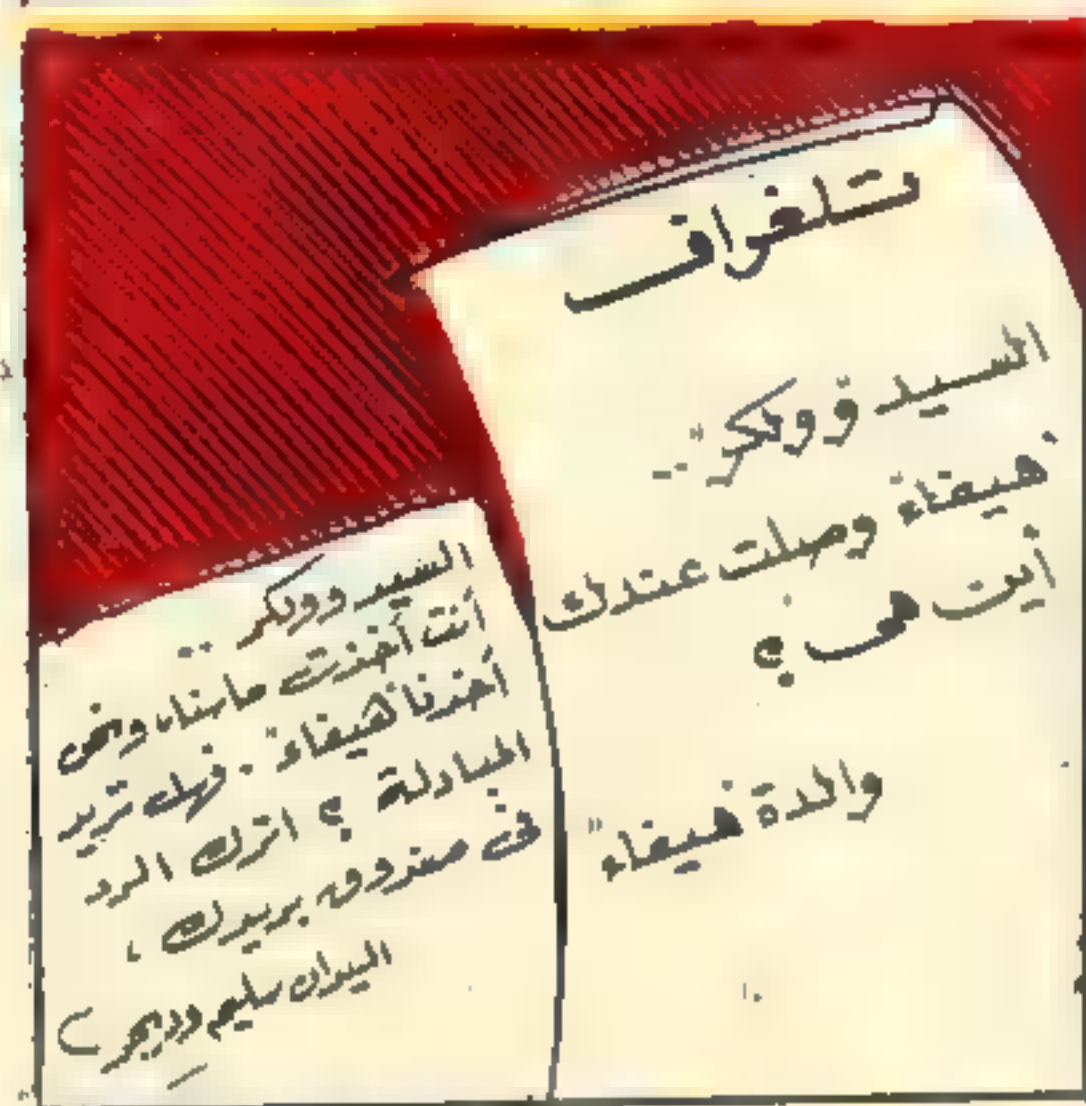 تلغراف
السيد ووكر ..
"هيفاء" وصلت عندك
أين هى ؟
والدة "هيفاء"
السيد ووكر ..
أنت أخذت مالنا، ونحن
أخذنا "هيفاء". فهل تريد
المبادلة ؟ اترك الرد
فى صندوق بريدك ،
سليم